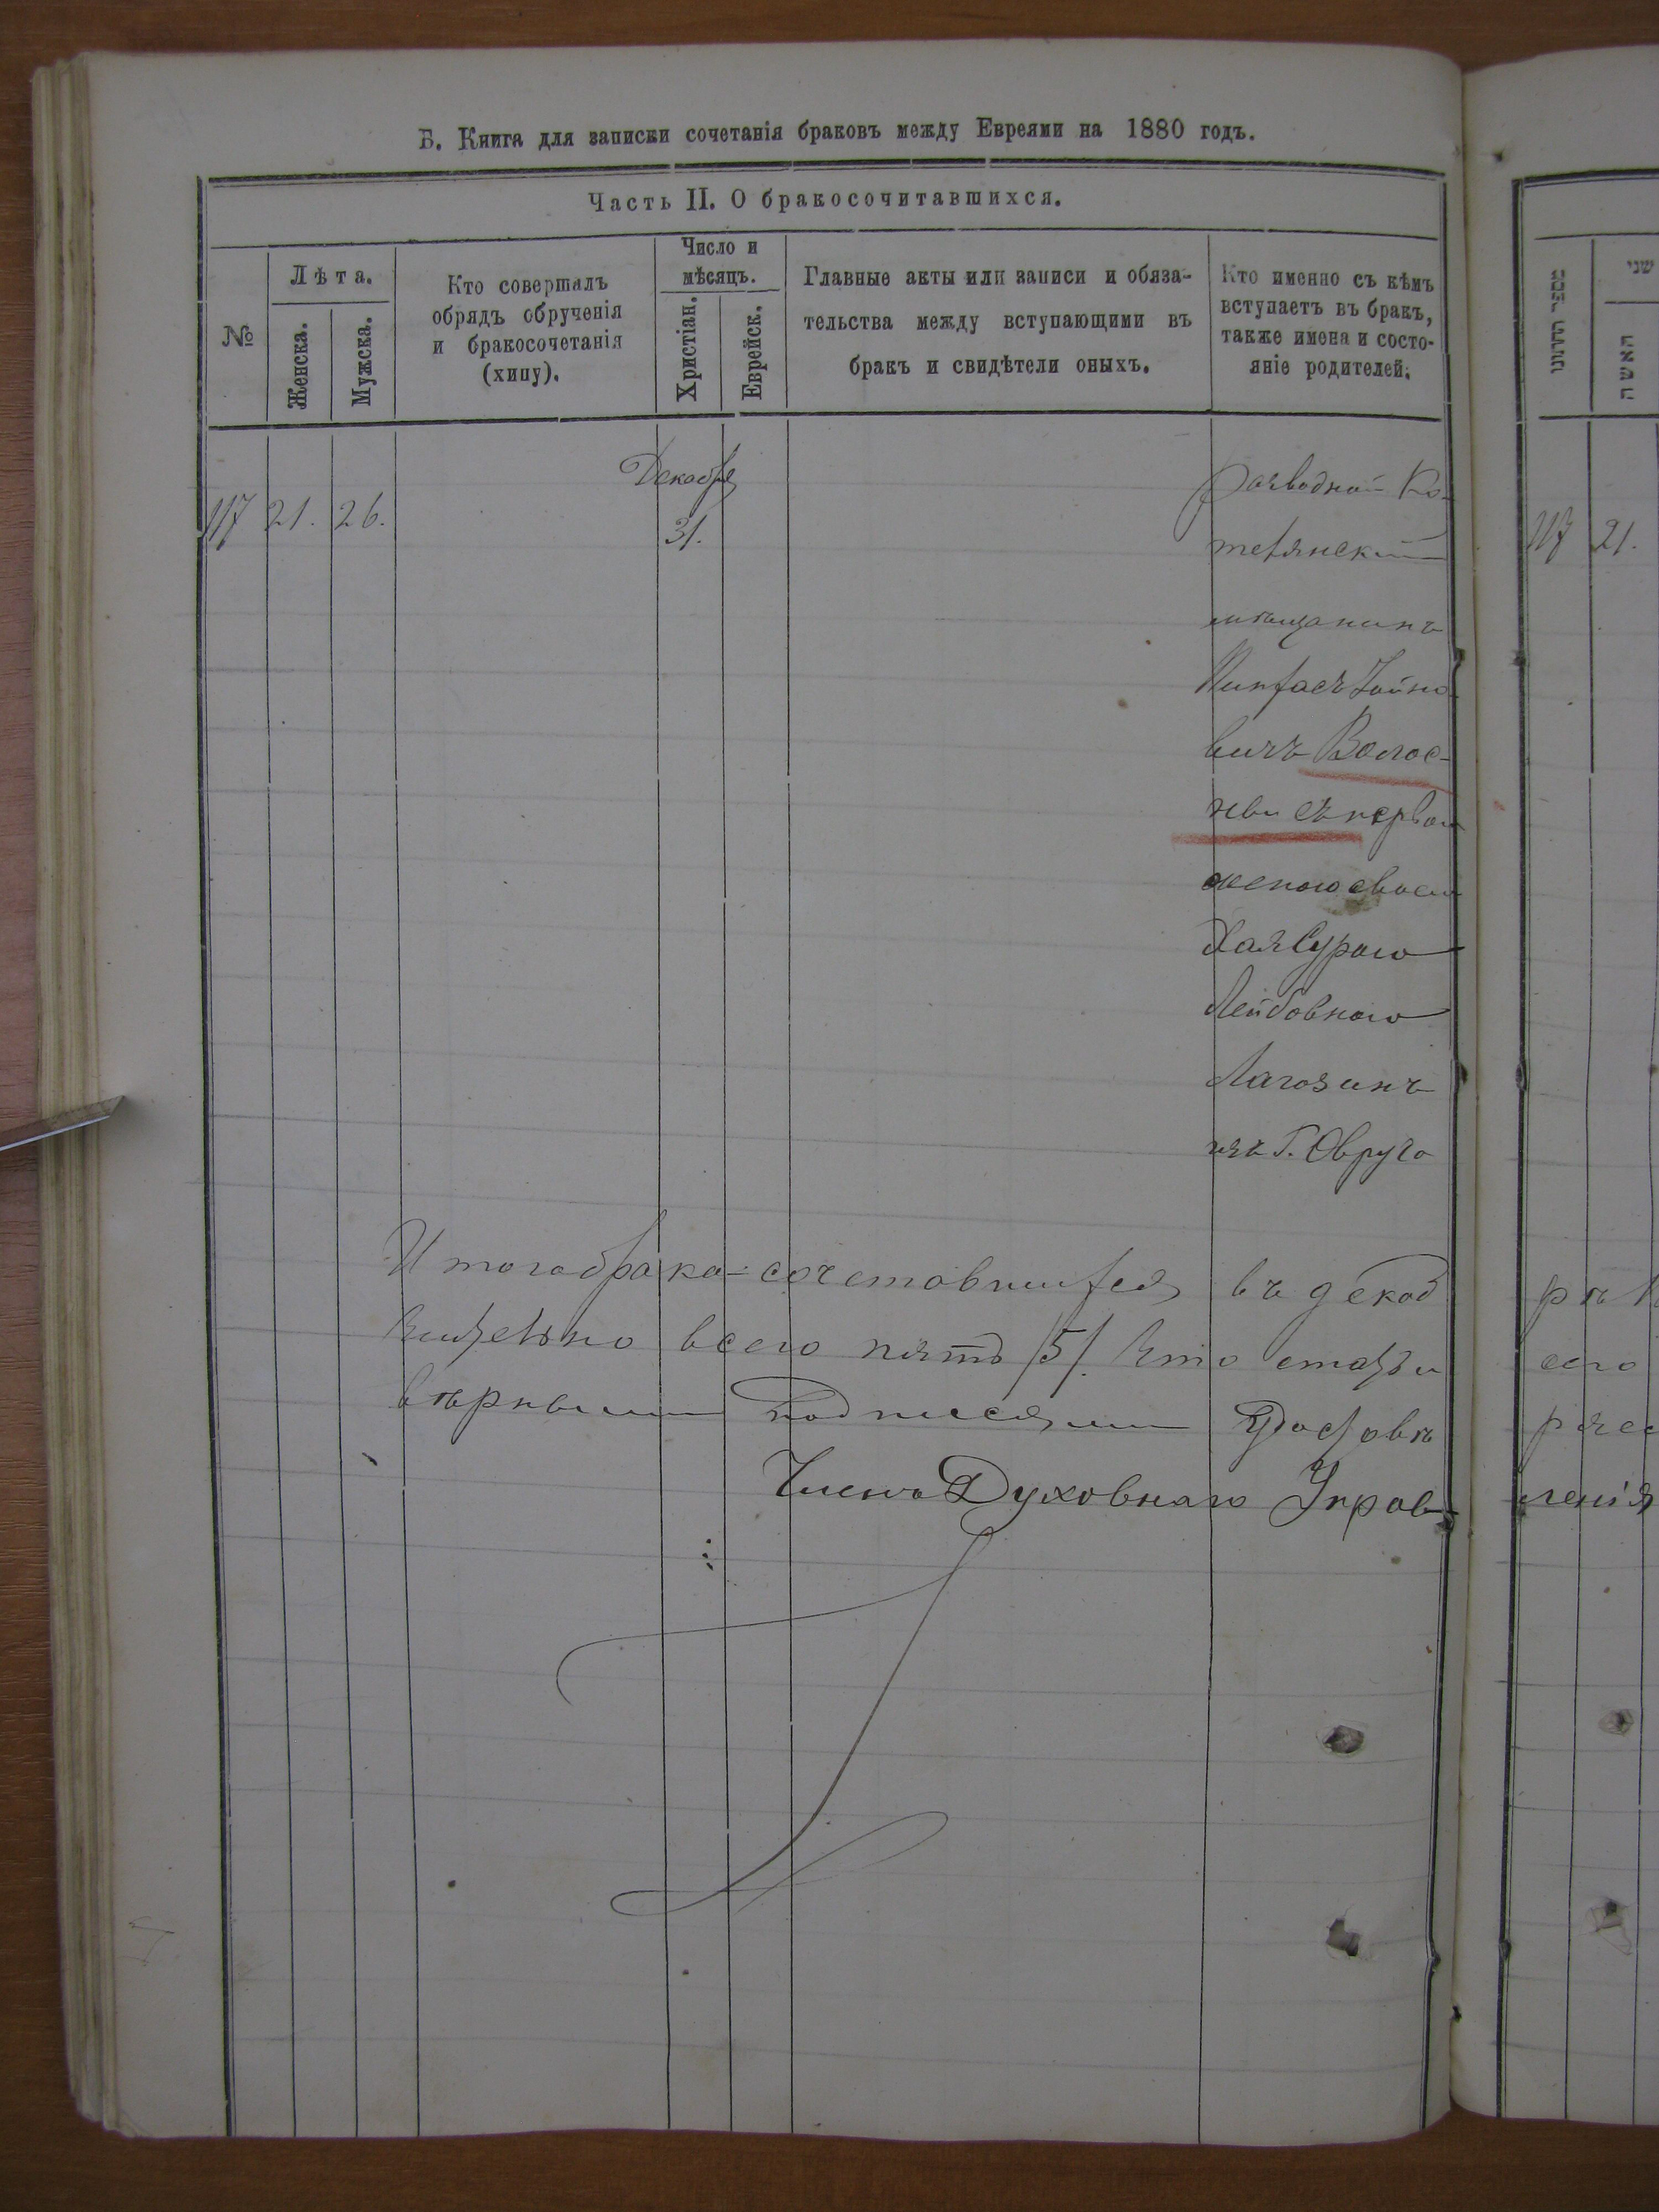 Б. Книга для записки сочетанія браковъ между Евреями на 1880 годъ.
Часть II. О бракосочитавшихся.
№
Лѣта.
Женска.
Мужска.
Кто совершалъ
обрядъ обрученія
и бракосочетанія
(хипу).
Число и
мѣсяцъ.
Христіан.
Еврейск.
Главные акты или записи и обяза-
тельства между вступающими въ
бракъ и свидѣтели оныхъ.
Кто именно съ кѣмъ
вступаетъ въ бракъ,
также имена и состо-
яніе родителей.
מספר החתונו
שני
האשה
Декабря
117 21. 26.
31.
разводной
мѣщанинъ
Пинхасъ
вичъ Волос-
первою
женою своею
Хая Сурою
Лейбовною
Лагозинъ
изъ Г. Овруча
117 21.
Итого брако-сочетавшихся въ декаб рѣ
всего пять /5/. Что его
вѣрными подписями
Члены Духовнаго Управ- ленія